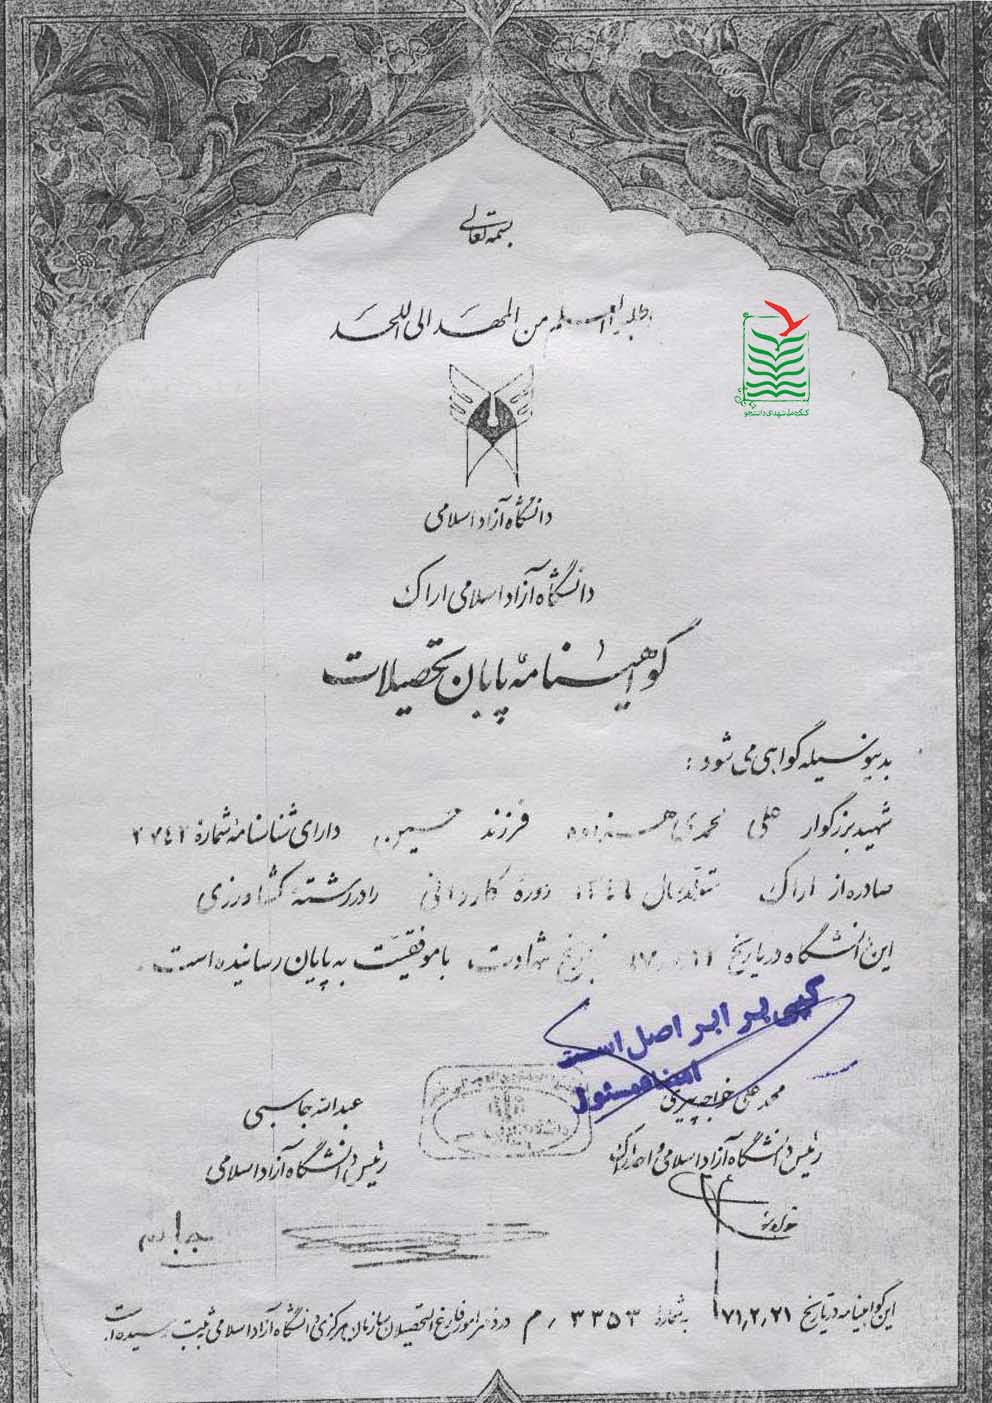 بسمه تعالی
اطلبوا العلم من المهد الی اللحد
کنگره ملی شهدای دانشجو
دانشگاه آزاد اسلامی
دانشگاه آزاد اسلامی اراک
گواهینامه پایان تحصیلات
بدینوسیله گواهی می شود :
شهید بزرگوار علی محمدی فرزند حسین دارای شناسنامه شماره
صادره از اراک متولد سال دوره کاردانی را در رشته کشاورزی
این دانشگاه در تاریخ تاریخ شهادت با موفقیت به پایان رسانیده است .
کپی برابر اصل است
امضا مسئول
محمد علی خواجه پیری
رئیس دانشگاه آزاد اسلامی واحد اراک
عبدالله جاسبی
رئیس دانشگاه آزاد اسلامی
این گواهینامه در تاریخ ۷۱,۲,۲۱ به شماره ۳۳۵۳ / م در دفتر امور فارغ التحصیلان سازمان مرکزی دانشگاه آزاد اسلامی به ثبت رسیده است